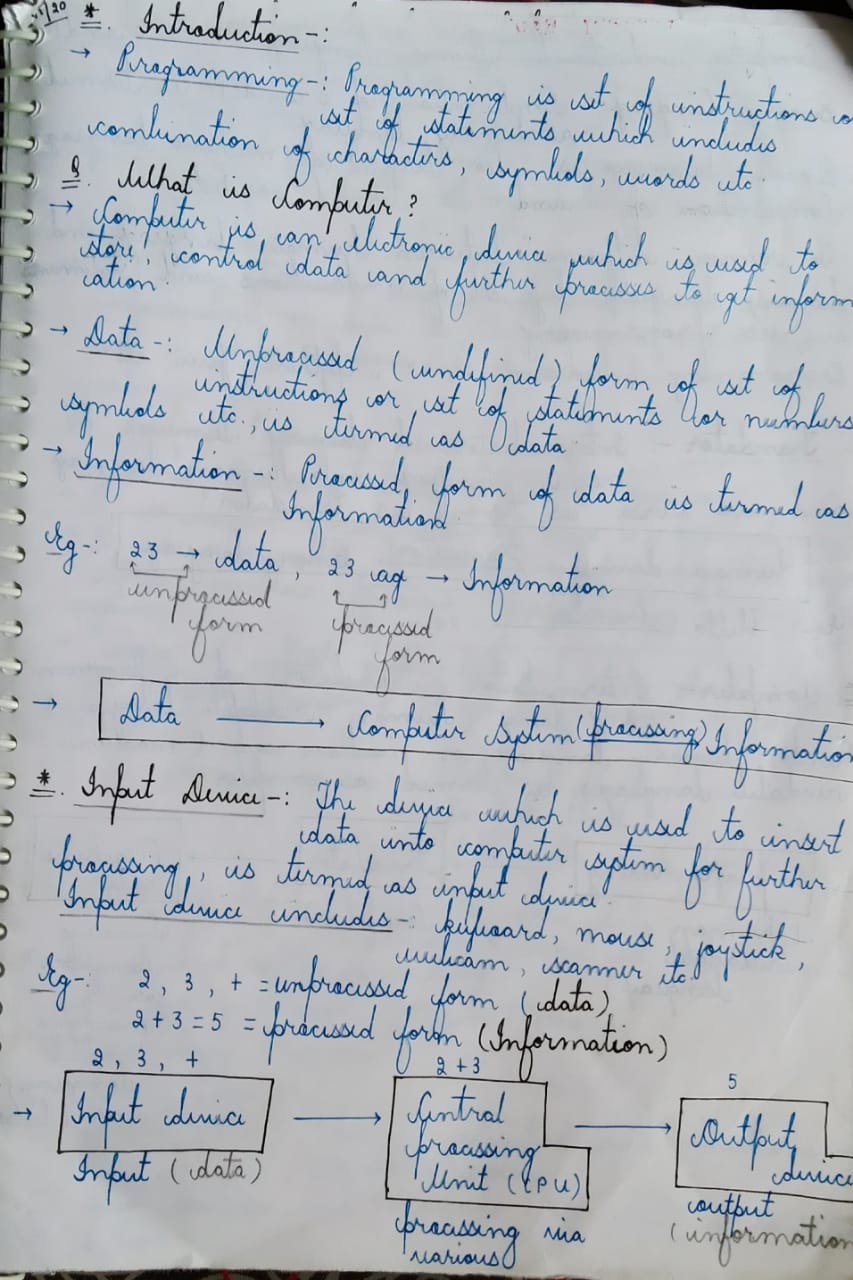 *. Introduction -:
→ Programming -: Programming is set of instructions or
set of statements which includes
combination of characters, symbols, words etc.
Q. What is Computer?
→ Computer is an electronic device which is used to
store, control data and further processes to get inform
ation.
→ Data -: Unprocessed (undefined) form of set of
instructions or set of statements or numbers
symbols etc., is termed as data.
→ Information -: Processed form of data is termed as
Information.
Eg -: 23 → data, 23 age → Information
unprocessed processed
form form
→ Data → Computer System (processing) Information
*. Input Device -: The device which is used to insert
data into computer system for further
processing, is termed as input device.
Input device includes -: keyboard, mouse, joystick,
webcam, scanner etc.
Eg -: 2, 3, + = unprocessed form (data)
2+3=5 = processed form (Information)
2, 3, + 2+3 5
→ Input device → Central → Output
processing device
Unit (CPU)
Input (data) output
processing via (information
various